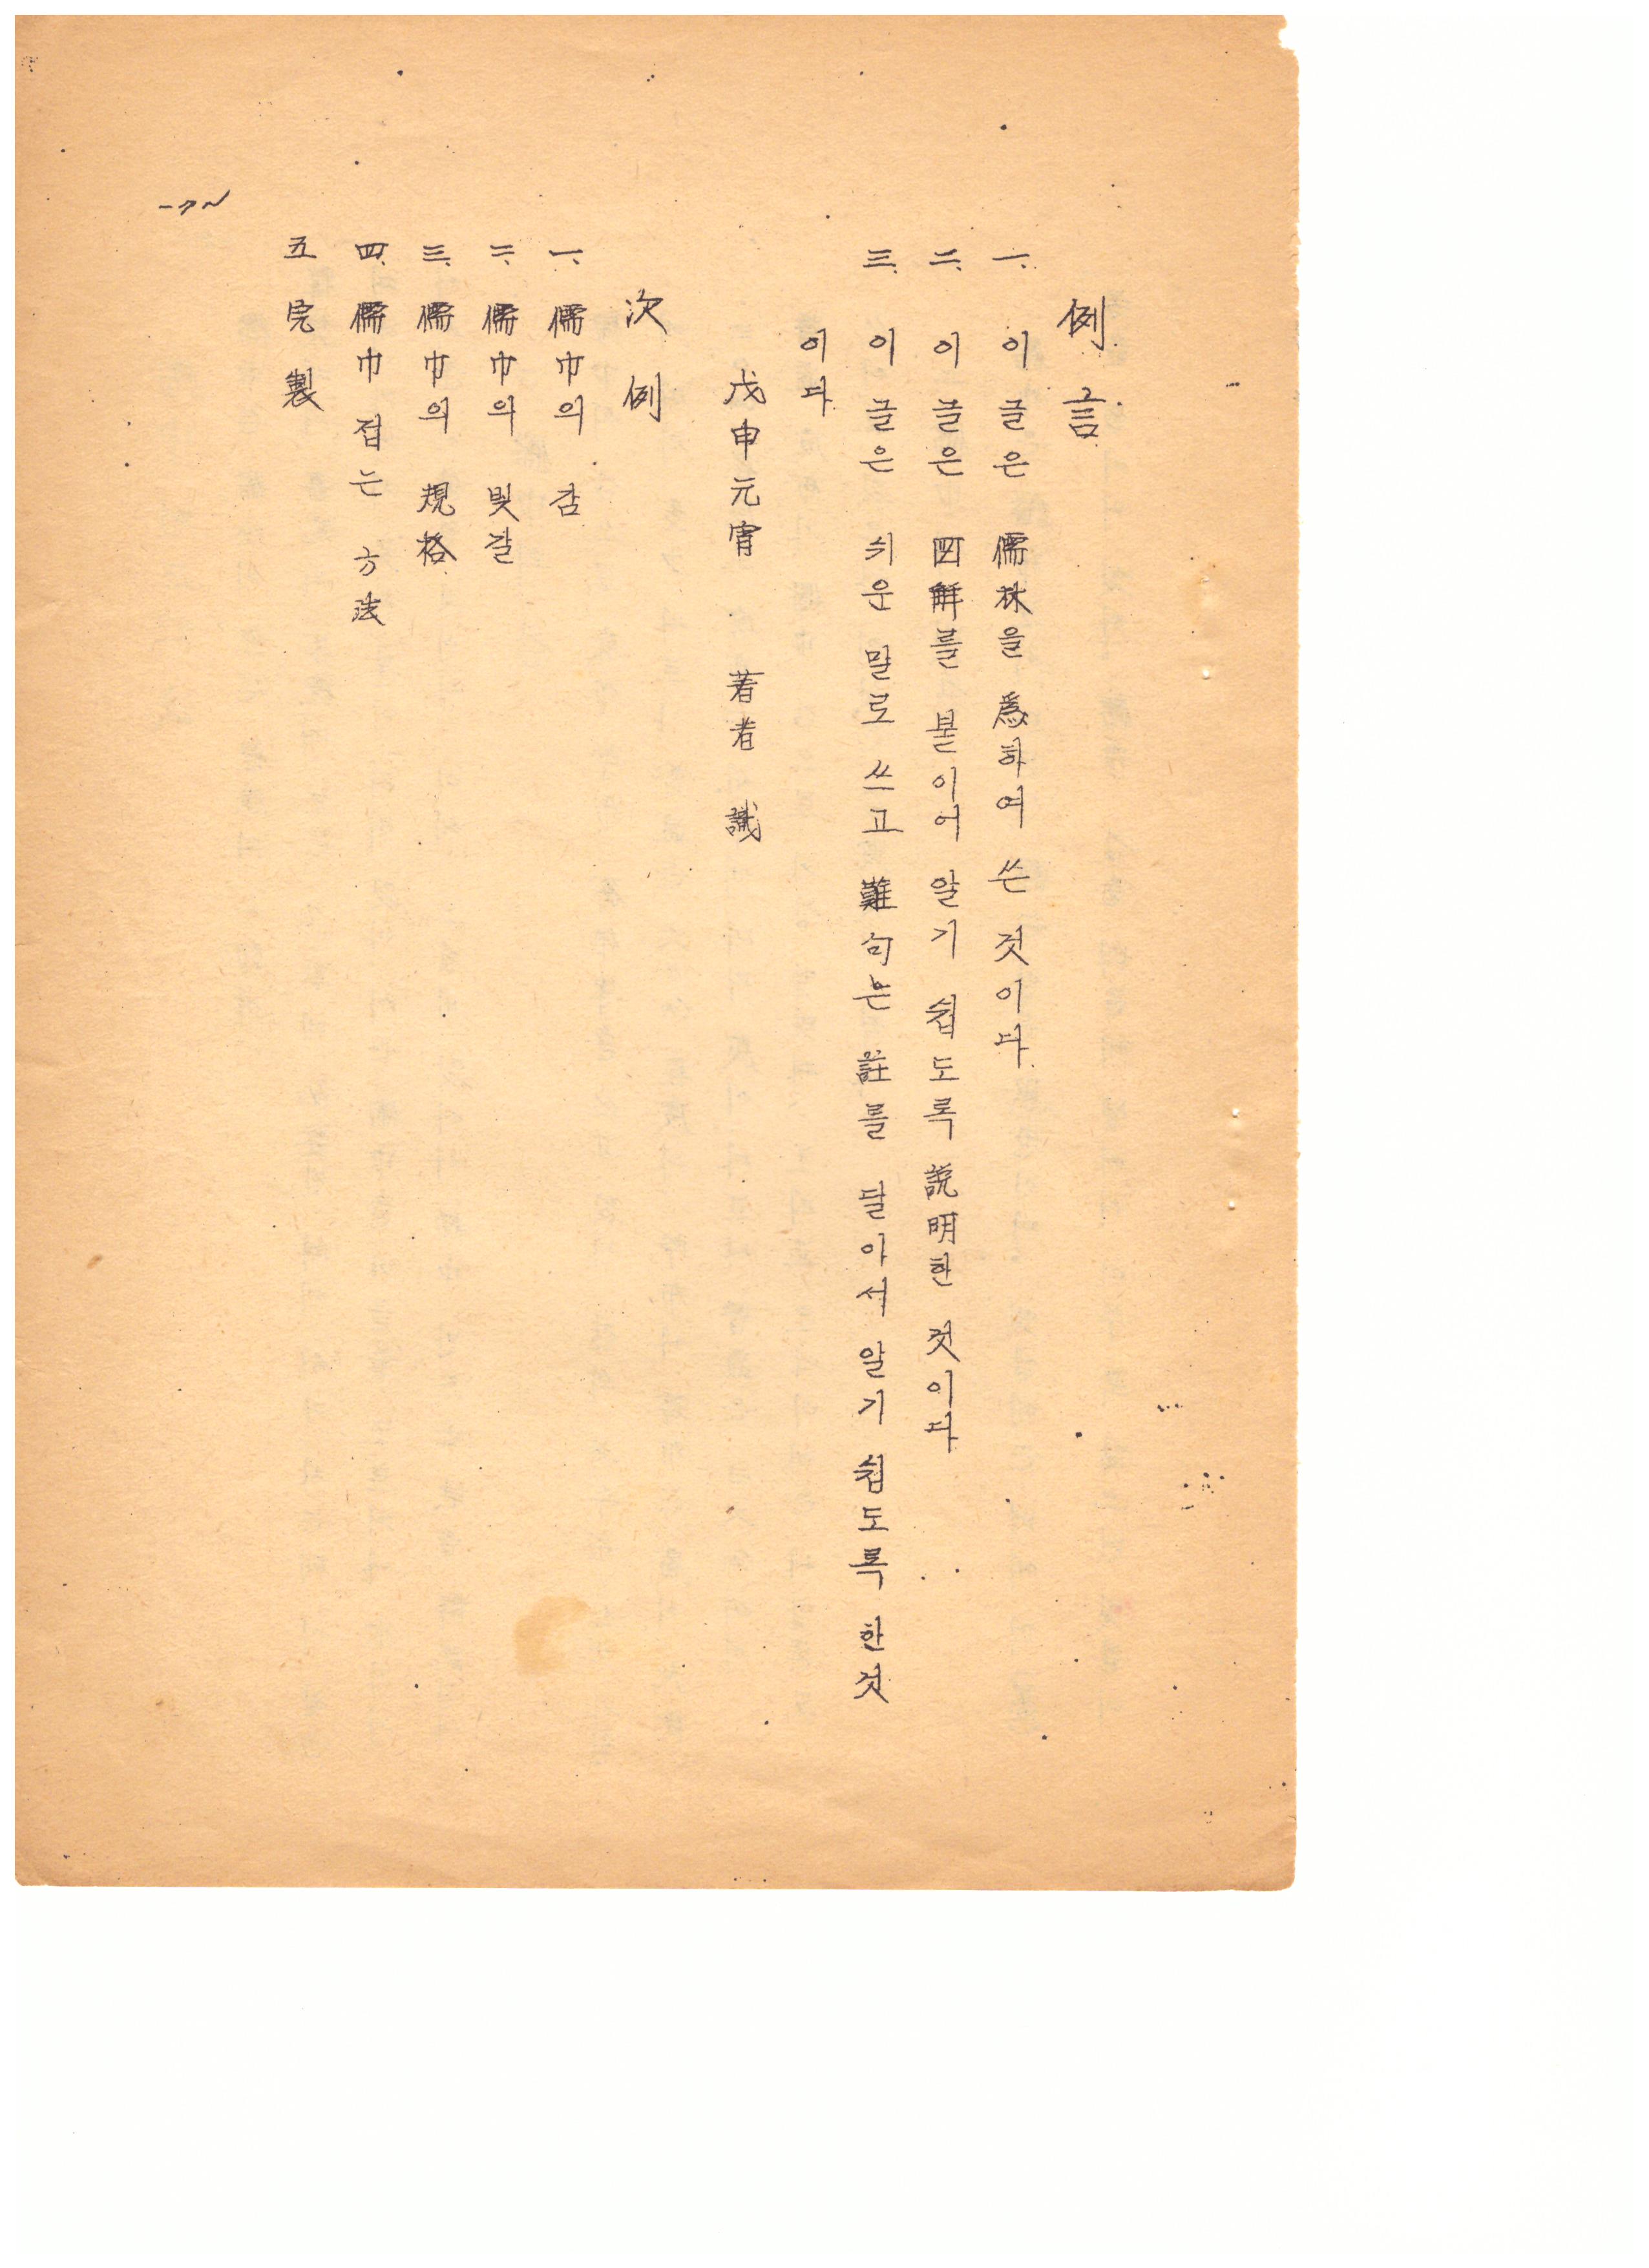 例言
一. 이글은 儒林을 爲하여 쓴 것이다.
二. 이글은 図解를 붙이어 알기 쉽도록 説明한 것이다
三. 이글은 쉬운 말로 쓰고 難句는 註를 달아서 알기 쉽도록 한것
이다.
戊申元宵 著者 識
次例
一. 儒巾의 감
二. 儒巾의 빛갈
三. 儒巾의 規格
四. 儒巾 접는 方法
五 完製